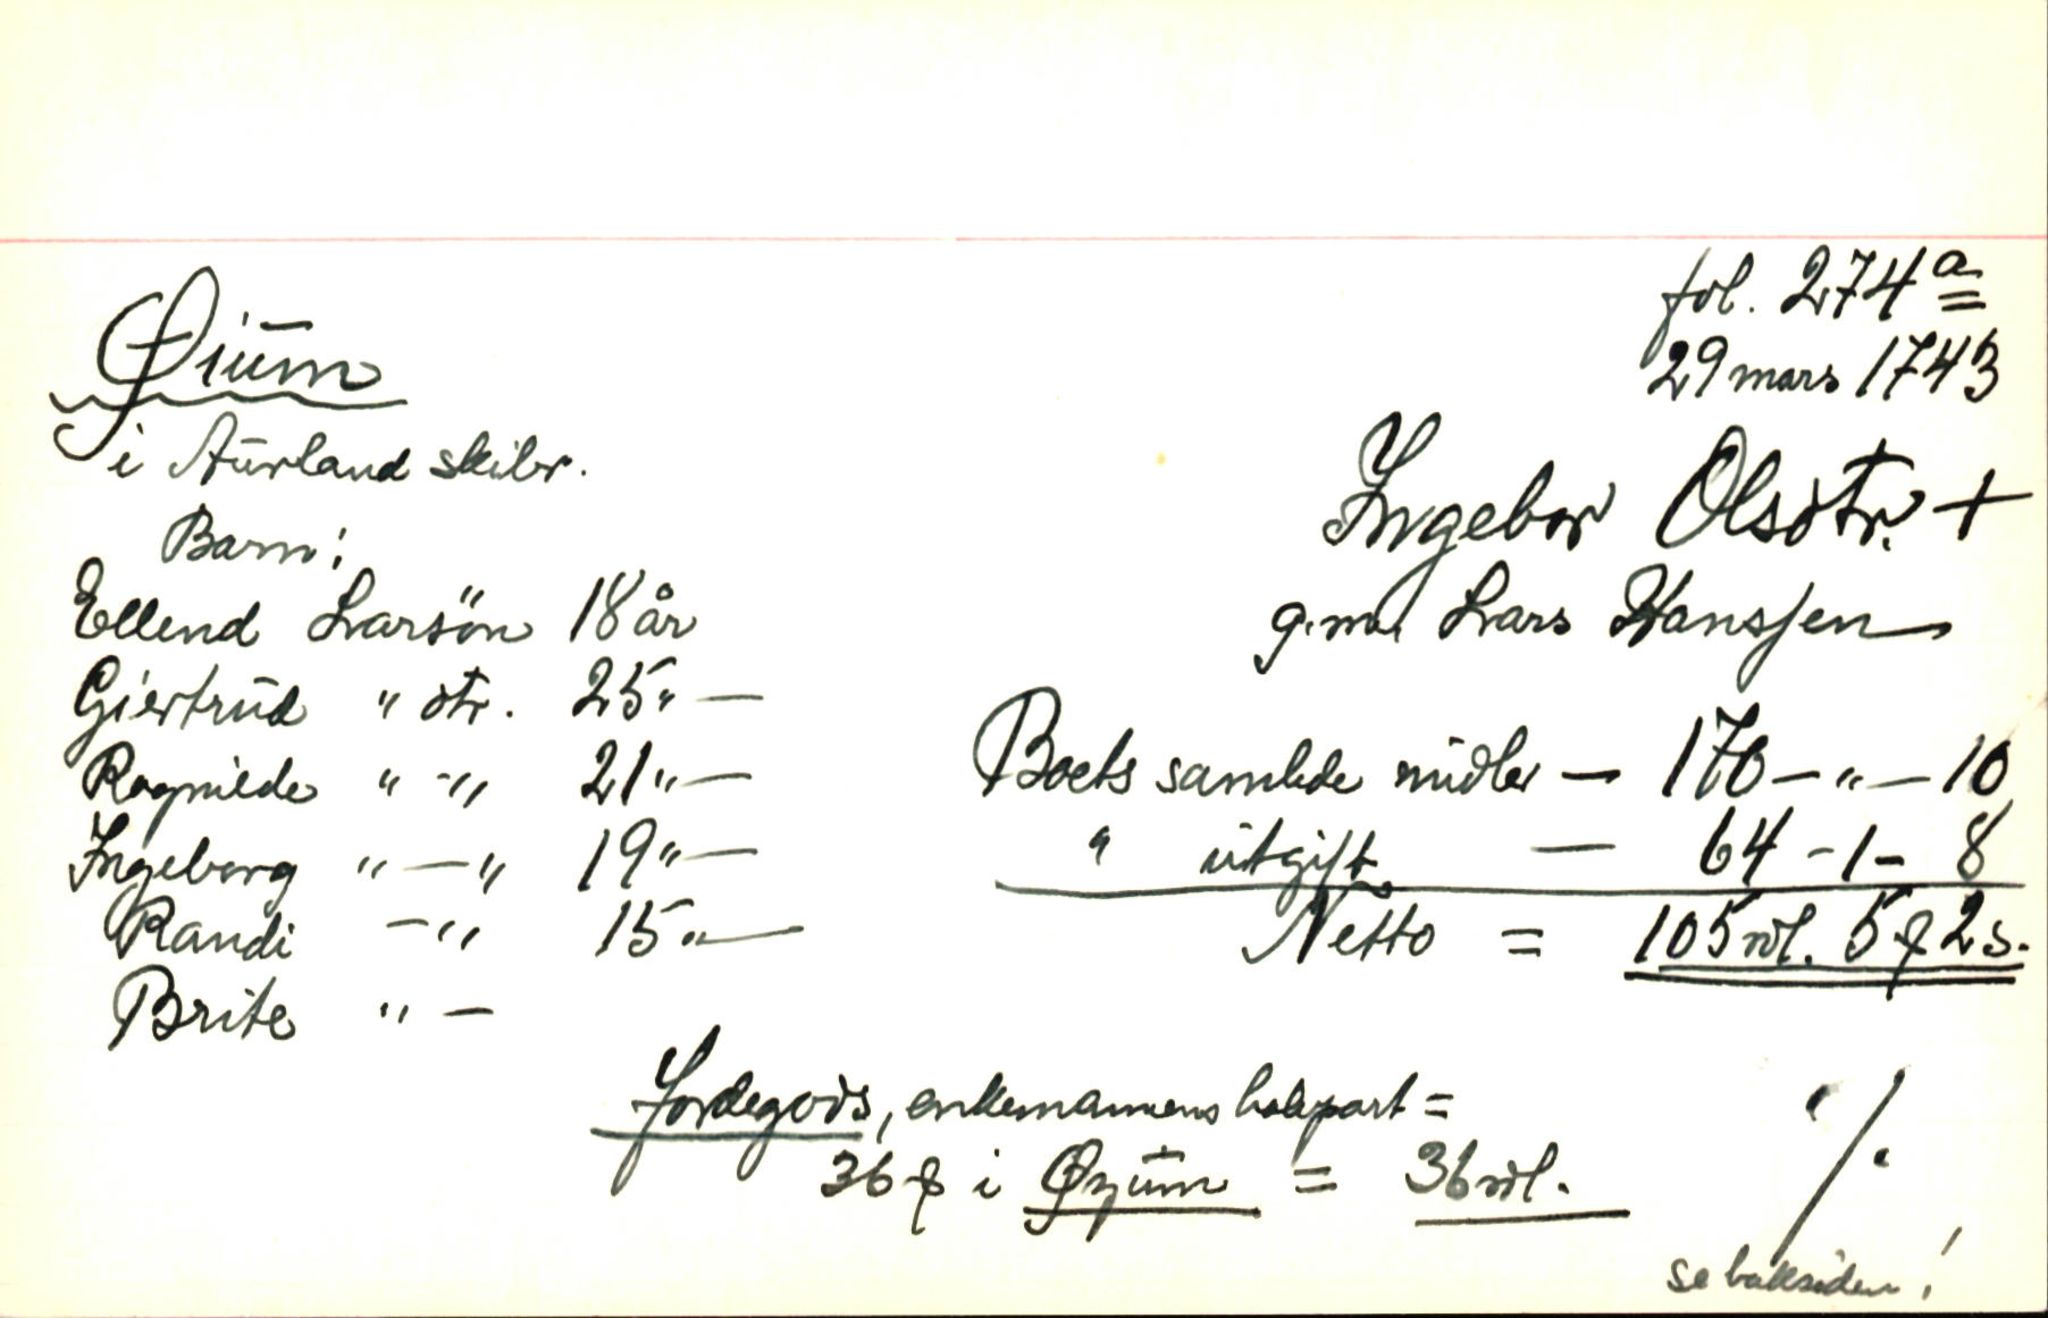 fol. 274a
29 mars 1743
Øium
i Aurland skibr.
Ingebor Olsdtr. +
g.m. Lars Hansen
Barn:
Ellend Larsön 18 år
Giertrud " dtr. 25 " —
Ragnilde " — " 21 " —
Ingeborg " — " 19 " —
Randi — " 15 " —
Brite " —
Boets samlede midler — 170 — " — 10
" utgift — 64 - 1 - 8
Netto = 105 rdl. 5 ₰ 2 s.
Jordegods, enkemannens halvpart =
36 ₰ i Øyum = 36 rdl.
./.
se baksiden!